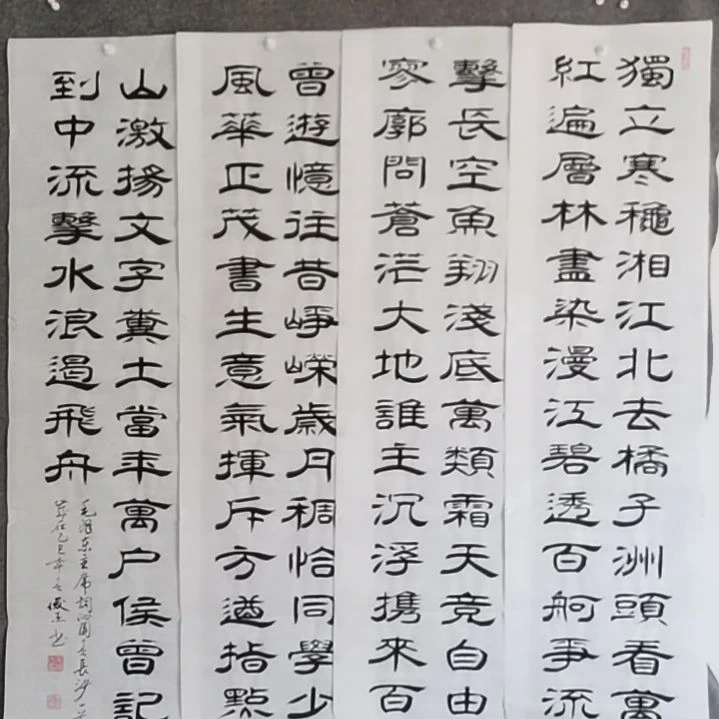 獨立寒穐湘江北去橘子洲頭看萬
紅遍層林盡染漫江碧透百舸爭流
擊長空魚翔淺底萬類霜天竞自由
寥廓問蒼茫大地誰主沉浮携來百
曾遊憶往昔崢嶸歲月稠恰同學少
風華正茂書生意氣揮斥方遒指點
山激揚文字糞土當年萬户侯曾記
到中流擊水浪遏飛舟
毛澤东主席詞沁園春長沙一
歲在乙巳年春